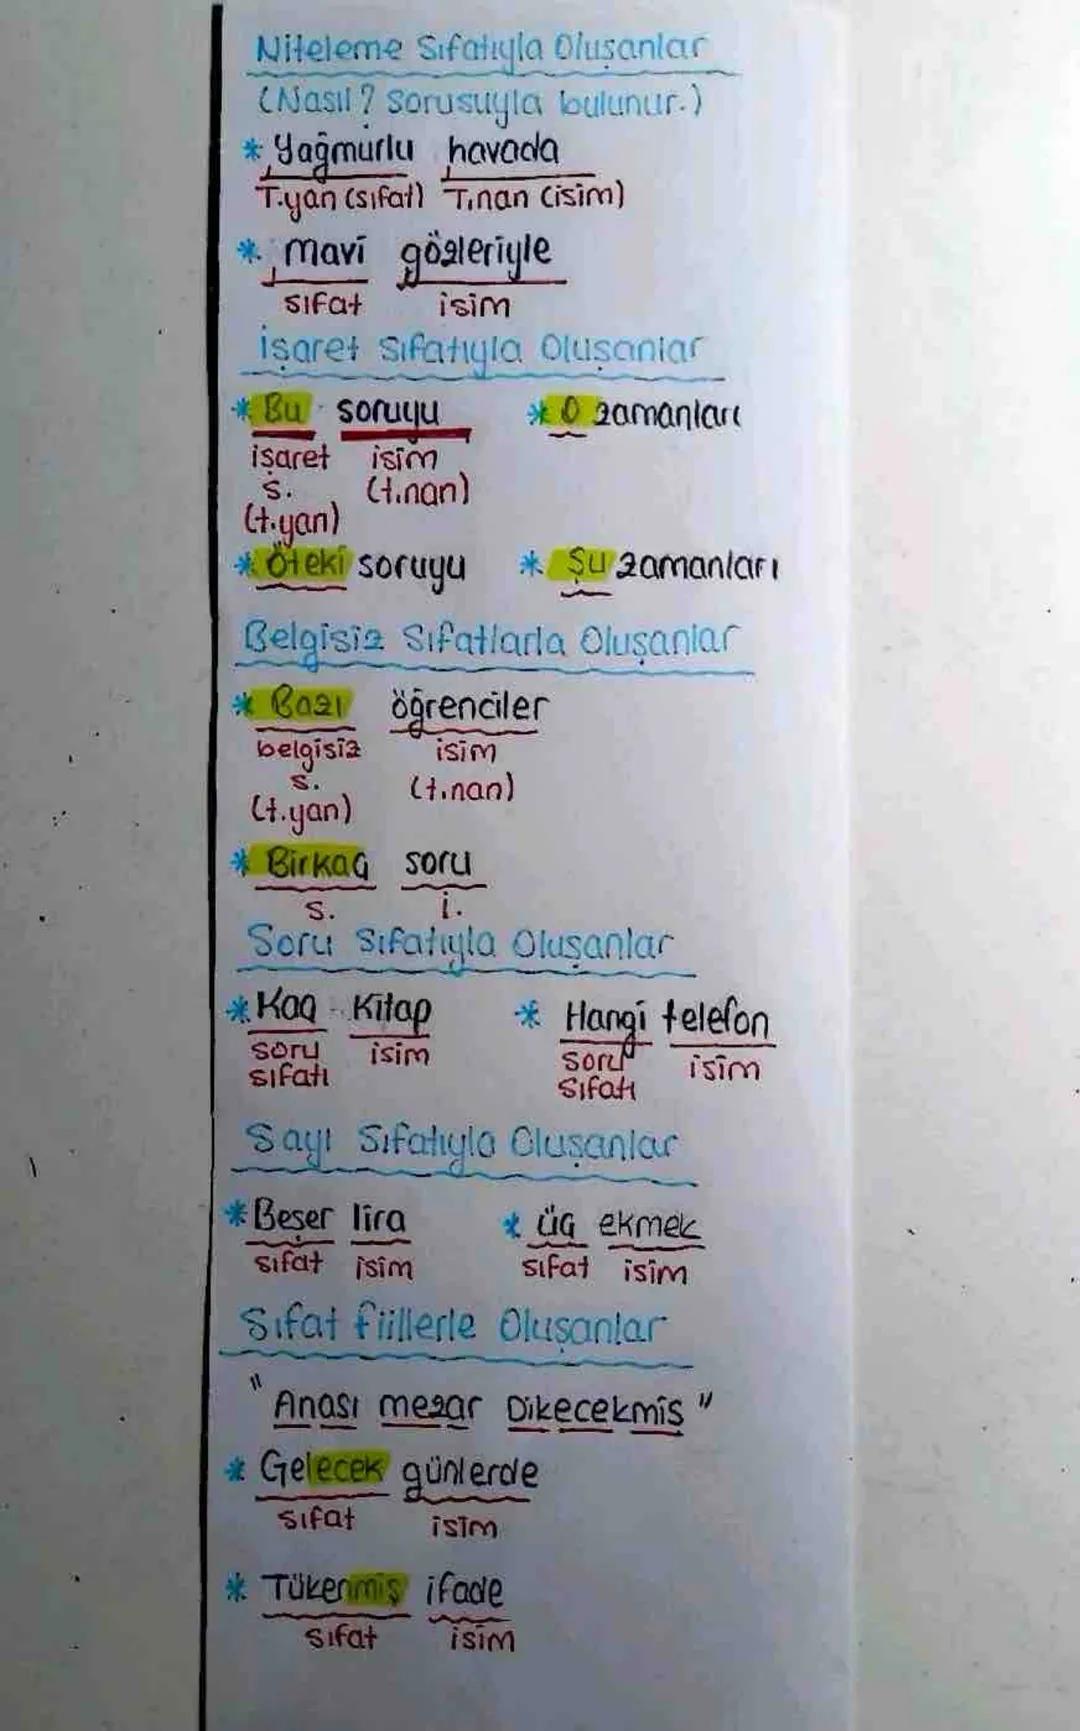 Niteleme Sıfatıyla Oluşanlar
(Nasıl? sorusuyla bulunur.)
* Yağmurlu havada
T.yan (sıfat) T.nan (isim)
* mavi gözleriyle
sıfat isim
İşaret Sıfatıyla Oluşanlar
* Bu soruyu * O zamanları
işaret isim
s. (t.nan)
(t.yan)
* Öteki soruyu * Şu zamanları
Belgisiz Sıfatlarla Oluşanlar
* Bazı öğrenciler
belgisiz isim
s. (t.nan)
(t.yan)
* Birkaç soru
s. i.
Soru Sıfatıyla Oluşanlar
* Kaç Kitap * Hangi telefon
soru isim soru isim
sıfatı sıfatı
Sayı Sıfatıyla Oluşanlar
* Beşer lira * üç ekmek
sıfat isim sıfat isim
Sıfat fiillerle Oluşanlar
"Anası mezar Dikecekmiş"
* Gelecek günlerde
sıfat isim
* Tükenmiş ifade
sıfat isim